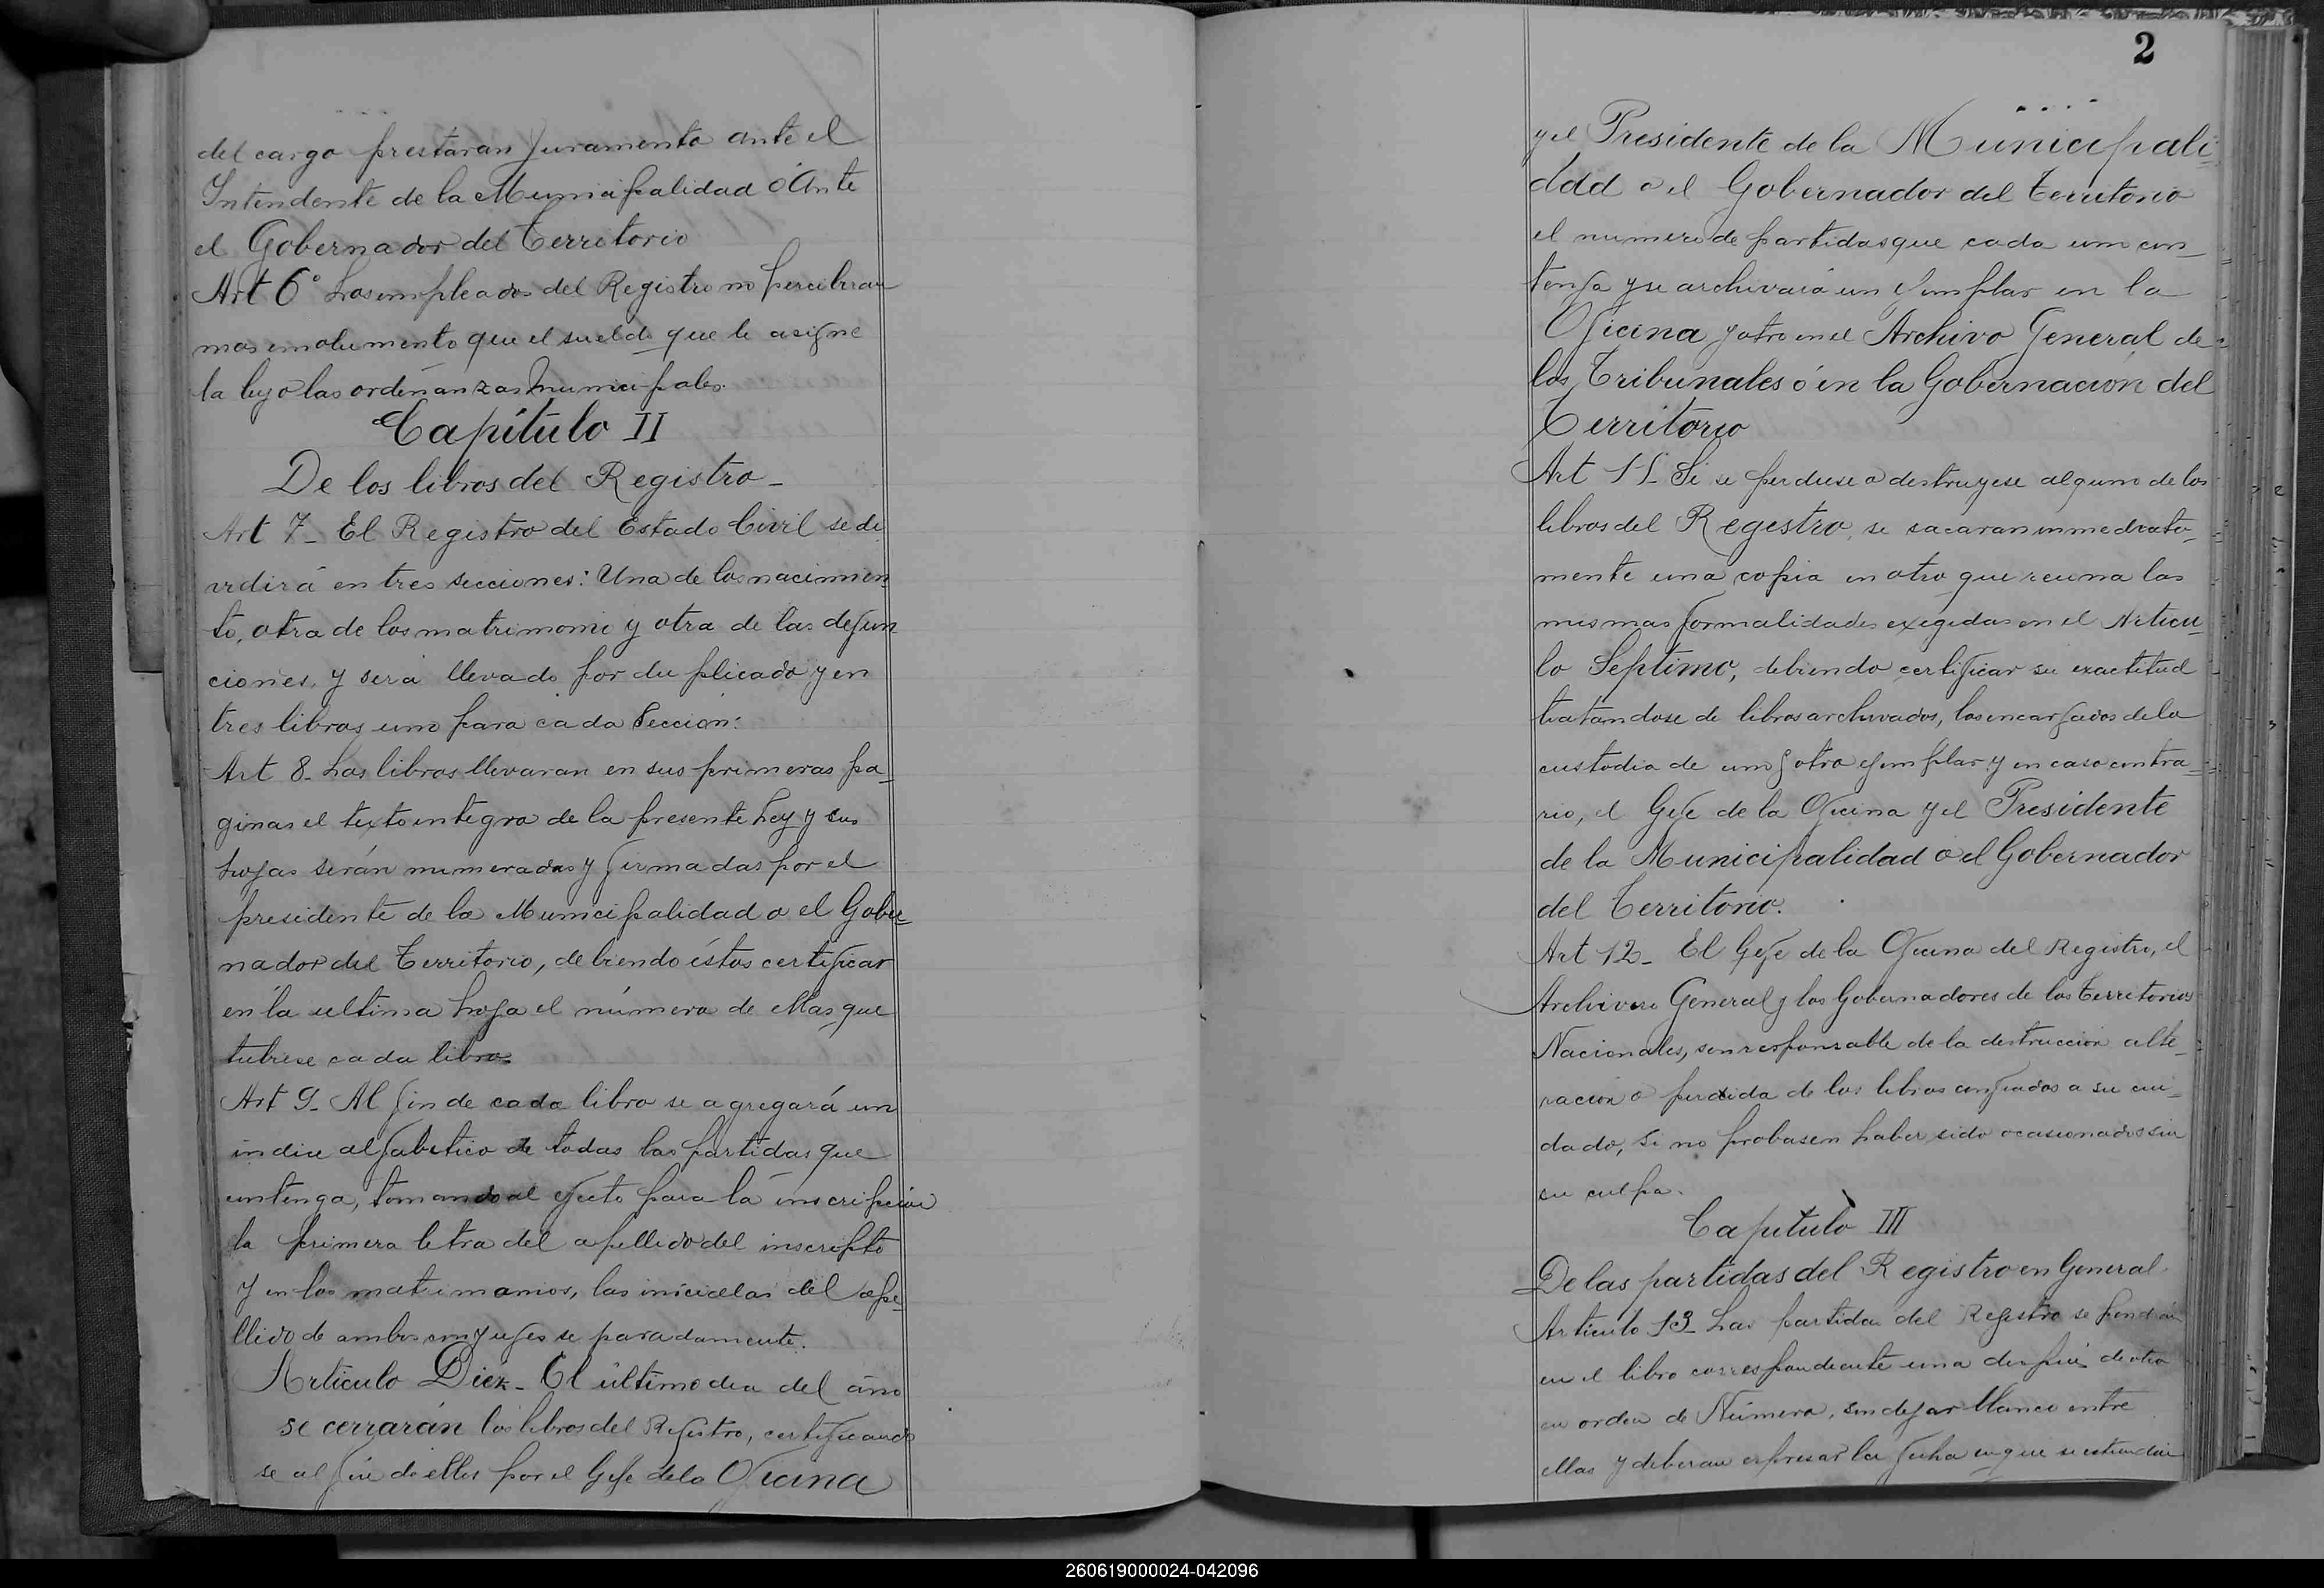 del cargo prestaran juramento ante el
Intendente de la Municipalidad ó Ante
el Gobernador del Territorio
Art 6° Los empleados del Registro no percibiran
mas emolumento que el sueldo que le asigne
la ley o las ordenanzas municipales.
Capítulo II
De los libros del Registro_
Art 7_ El Registro del Estado Civil se di
vidirá en tres secciones: Una de los nacimien
to, otra de los matrimonio y otra de las defun
ciones, y sera llevado por duplicado y en
tres libros uno para cada Seccion:
Art 8_ Los libros llevaran en sus primeras pa_
ginas el texto integro de la presente Ley y sus
hojas serán numeradas y firmadas por el
presidente de la Municipalidad o el Gober
nador del Territorio, debiendo éstos certificar
en la ultima hoja el número de ellas que
tubiese cada libro
Art 9_ Al fin de cada libro se agregará un
indice alfabetico de todas las partidas que
contenga, tomando al efecto para la inscripción
la primera letra del apellido del inscripto
y en los matrimonios, las iniciales del ape_
llido de ambos conyuges separadamente.
Artículo Diez_ El último dia del ano
se cerrarán los libros del Registro, certificando
se al fin de ellos por el Gefe de la Oficina
2
y el Presidente de la Municipali
dad o el Gobernador del Territorio
el numero de partidas que cada uno con_
tenga y se archivará un ejemplar en la
Oficina y otro en el Archivo General de
los Tribunales ó en la Gobernación del
Territorio
Art 11_ Si se perdiese o destruyese alguno de los
libros del Registro, se sacaran inmediata_
mente una copia en otro que reuna las
mismas formalidades exigidas en el Articu_
lo Septimo, debiendo certificar su exactitud
tratándose de libros archivados, los encargados de la
custodia de uno y otro ejemplar y en caso contra_
rio, el Gefe de la Oficina y el Presidente
de la Municipalidad o el Gobernador
del Territorio.
Art 12_ El Gefe de la Oficina del Registro, el
Archivero General y los Gobernadores de los Territorios
Nacionales, son responsable de la destruccion alte_
racion o perdida de los libros confiados a su cui_
dado, si no probasen haber sido ocasionados sin
su culpa.
Capítulo III
De las partidas del Registro en General
Artículo 13_ Las partidas del Registro se pondrán
en el libro correspondiente una después de otra
en orden de Número, sin dejar blanco entre
ellas y deberan expresar la fecha en que se estiendan
260619000024-042096